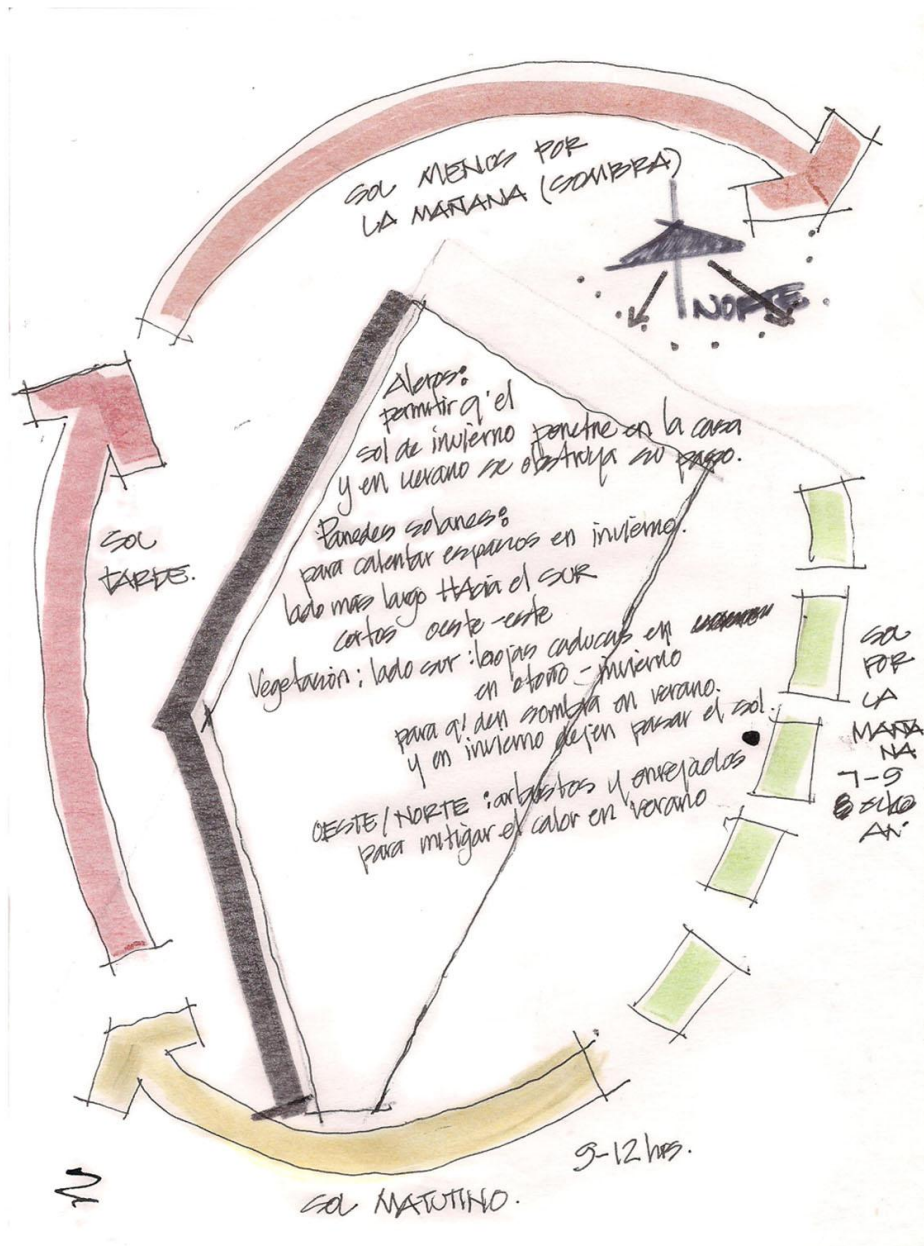 SOL MENOS POR
LA MAÑANA (SOMBRA)
NORTE
Aleros:
permitir q' el
sol de invierno penetre en la casa
y en verano se obstruya su paso.
Paredes solares:
para calentar espacios en invierno.
lado más largo HAcia el SUR
cortos oeste-este
Vegetación: lado sur: hojas caducas en
en otoño - invierno
para q' den sombra en verano.
y en invierno dejen pasar el sol.
OESTE/NORTE: arbustos y enrejados
para mitigar el calor en verano
SOL
TARDE.
SOL
POR
LA
MAÑA
NA
7-9
AN
9-12 hrs.
SOL MATUTINO.